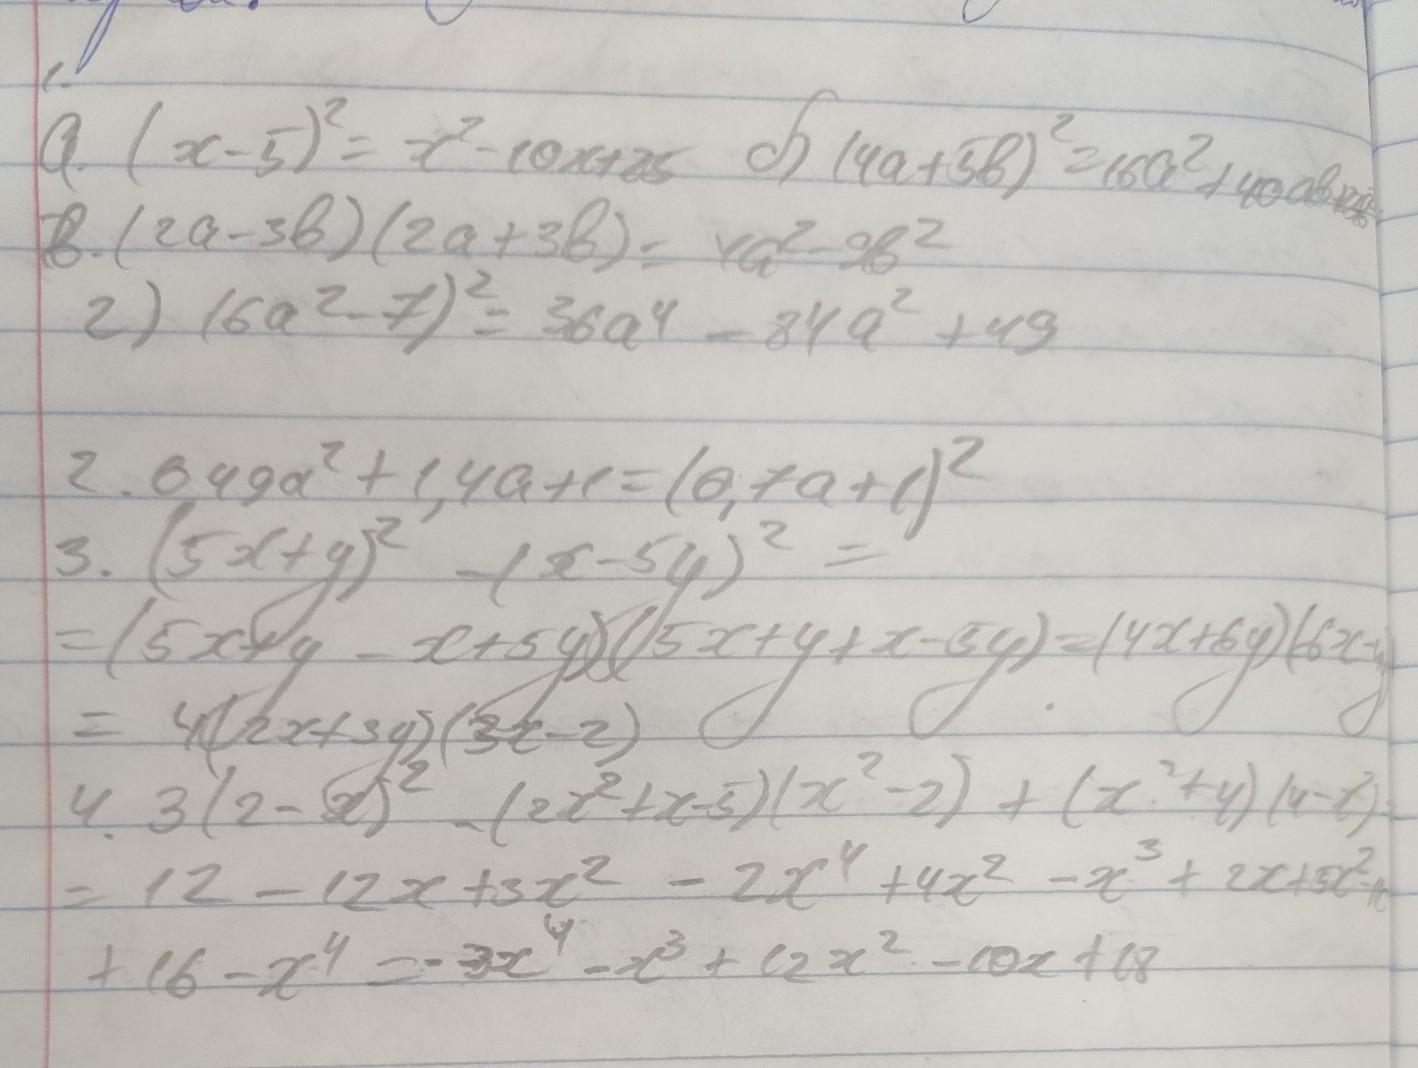 1.
а. (x-5)² = x² - 10x+25 б) (4a+5b)² = 16a² + 40ab
в. (2a-3b)(2a+3b) = 4a² - 9b²
г) (6a²-7)² = 36a⁴ - 84a² + 49
2. 0,49a² + 1,4a+1 = (0,7a+1)²
3. (5x+y)² - (x-5y)² =
= (5x+y - x+5y)(5x+y+x-5y) = (4x+6y)(6x-
= 4(2x+3y)(3x-2)
4. 3(2-x)² - (2x²+x-5)(x²-2) + (x²+4)(4-x²)
= 12 - 12x + 3x² - 2x⁴ + 4x² - x³ + 2x + 5x²
+ 16 - x⁴ = -3x⁴ - x³ + 12x² - 10x + 18